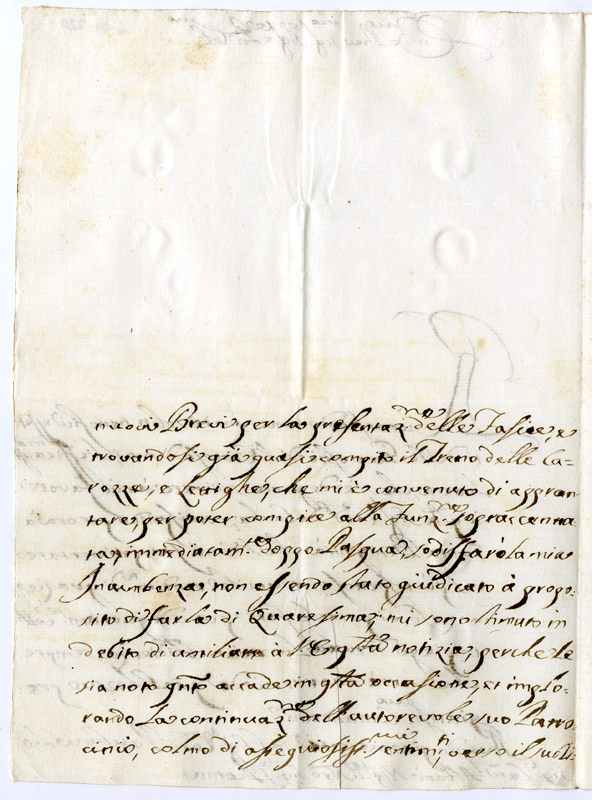 nuovi Brevi per la presentaz.ne delle Fascie, e
trovandosi già quasi compito il Treno delle Ca-
rozze, e Lettighe, che mi è convenuto di appron-
tare, per poter compire alla Funz.ne sopraccenna-
ta, immediatam.te doppo Pasqua, sodisfarò la mia
Incumbenza, non essendo stato giudicato à propo-
sito di farla di Quaresima; mi sono stimato in
debito di à l'E. notizia, perche le
sia noto qnto accade in qsta occasione, et implo-
rando la continuaz.ne dell'autorevole suo Patro-
cinio, colmo di ossequiosiss.mi sentim.ti verso il